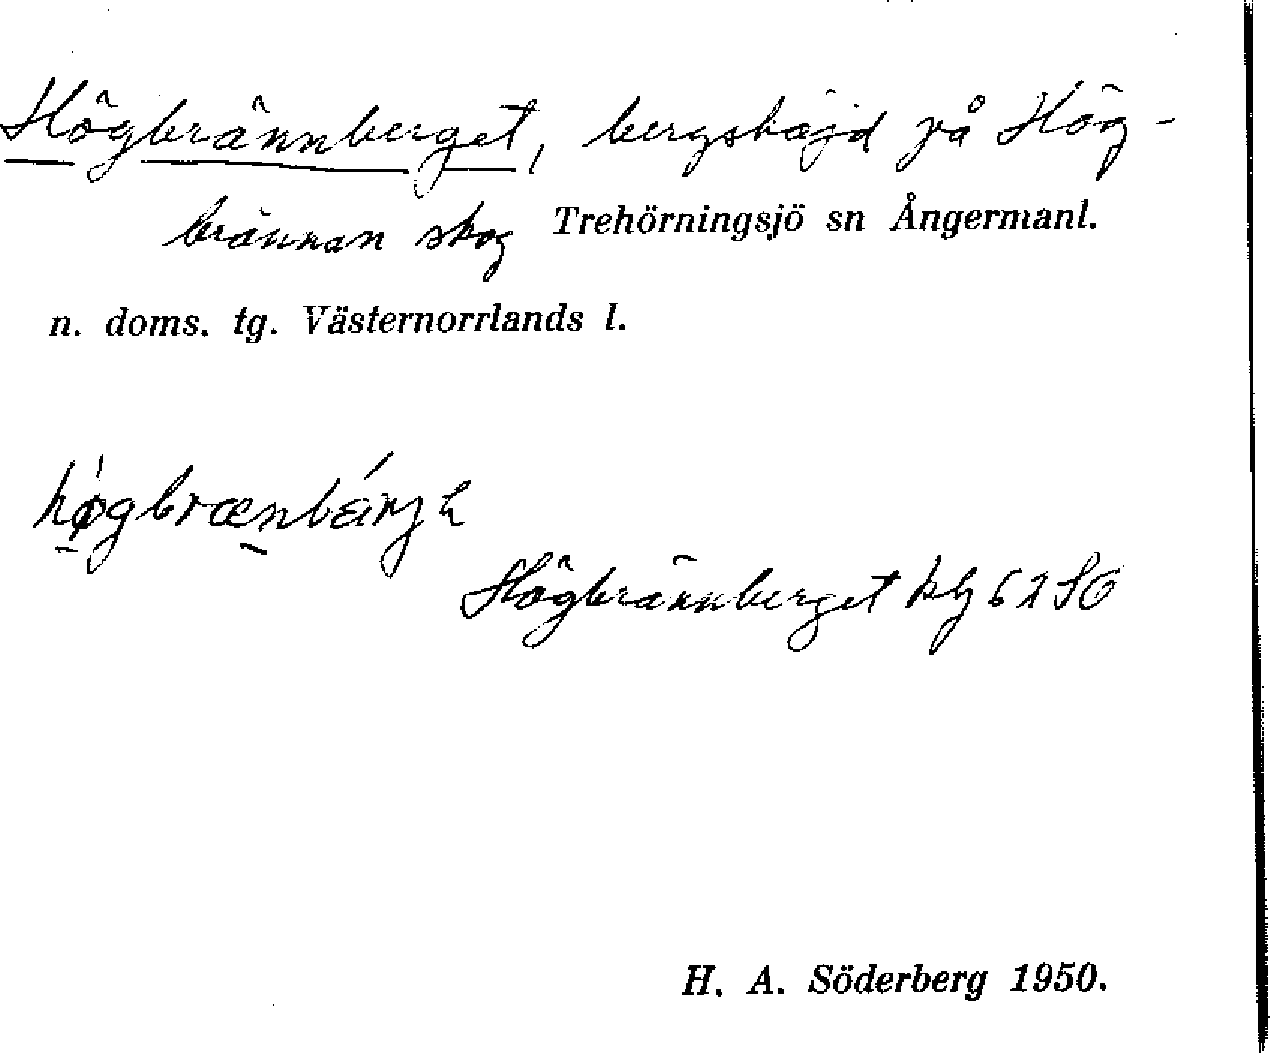 Högbrännberget, bergshöjd på Hög-
brännan skog Trehörningsjö sn Ångermanl.
n. doms. tg. Västernorrlands l.
Högbrännberget kbg 62 SO
H. A. Söderberg 1950.